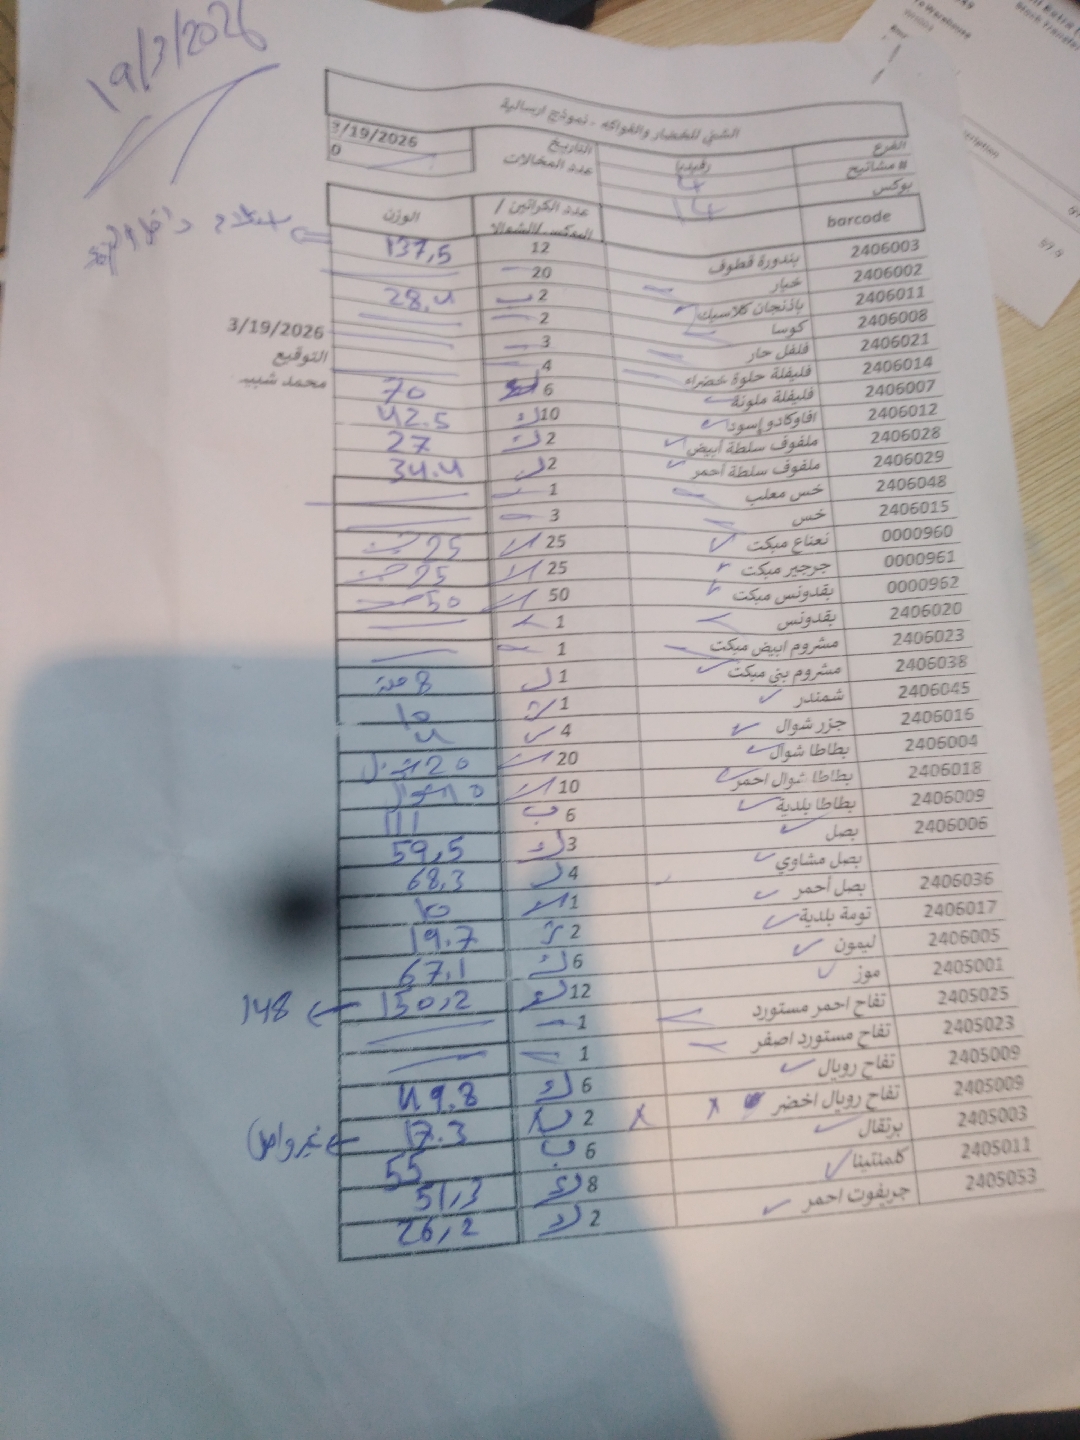 19/3/2026
الشني للخضار والفواكه - نموذج ارسالية
الفرع رفيديا التاريخ 3/19/2026
# مشاتيح 4 عدد المخالات 0
بوكس 14
barcode عدد الكراتين / البوكس/الشوالا الوزن
2406003 بندورة قطوف 12 137,5
2406002 خيار 20
2406011 باذنجان كلاسيك 2 28.4
2406008 كوسا 2
2406021 فلفل حار 3
2406014 فليفلة حلوة خضراء 4
2406007 فليفلة ملونة 6 70
2406012 افاوكادو إسود 10 42.5
2406028 ملفوف سلطة أبيض 2 27
2406029 ملفوف سلطة أحمر 2 34.4
2406048 خس معلب 1
2406015 خس 3
0000960 نعناع مبكت 25 25
0000961 جرجير مبكت 25 25
0000962 بقدونس مبكت 50 50
2406020 بقدونس 1
2406023 مشروم ابيض مبكت 1
2406038 مشروم بني مبكت 1 8
2406045 شمندر 1 10
2406016 جزر شوال 4 4
2406004 بطاطا شوال 20 20
2406018 بطاطا شوال احمر 10 10
2406009 بطاطا بلدية 6 111
2406006 بصل 3 59,5
بصل مشاوي 4 68,3
2406036 بصل أحمر 1 10
2406017 تومة بلدية 2 19.7
2406005 ليمون 6 67.1
2405001 موز 12 150,2 148
2405025 تفاح احمر مستورد 1
2405023 تفاح مستورد اصفر 1
2405009 تفاح رويال 6 49.8
2405009 تفاح رويال اخضر 2 17.3
2405003 برتقال 6 55
2405011 كلمنتينا 8 51,3
2405053 جريفوت احمر 2 26,2
3/19/2026
التوقيع
محمد شبيب